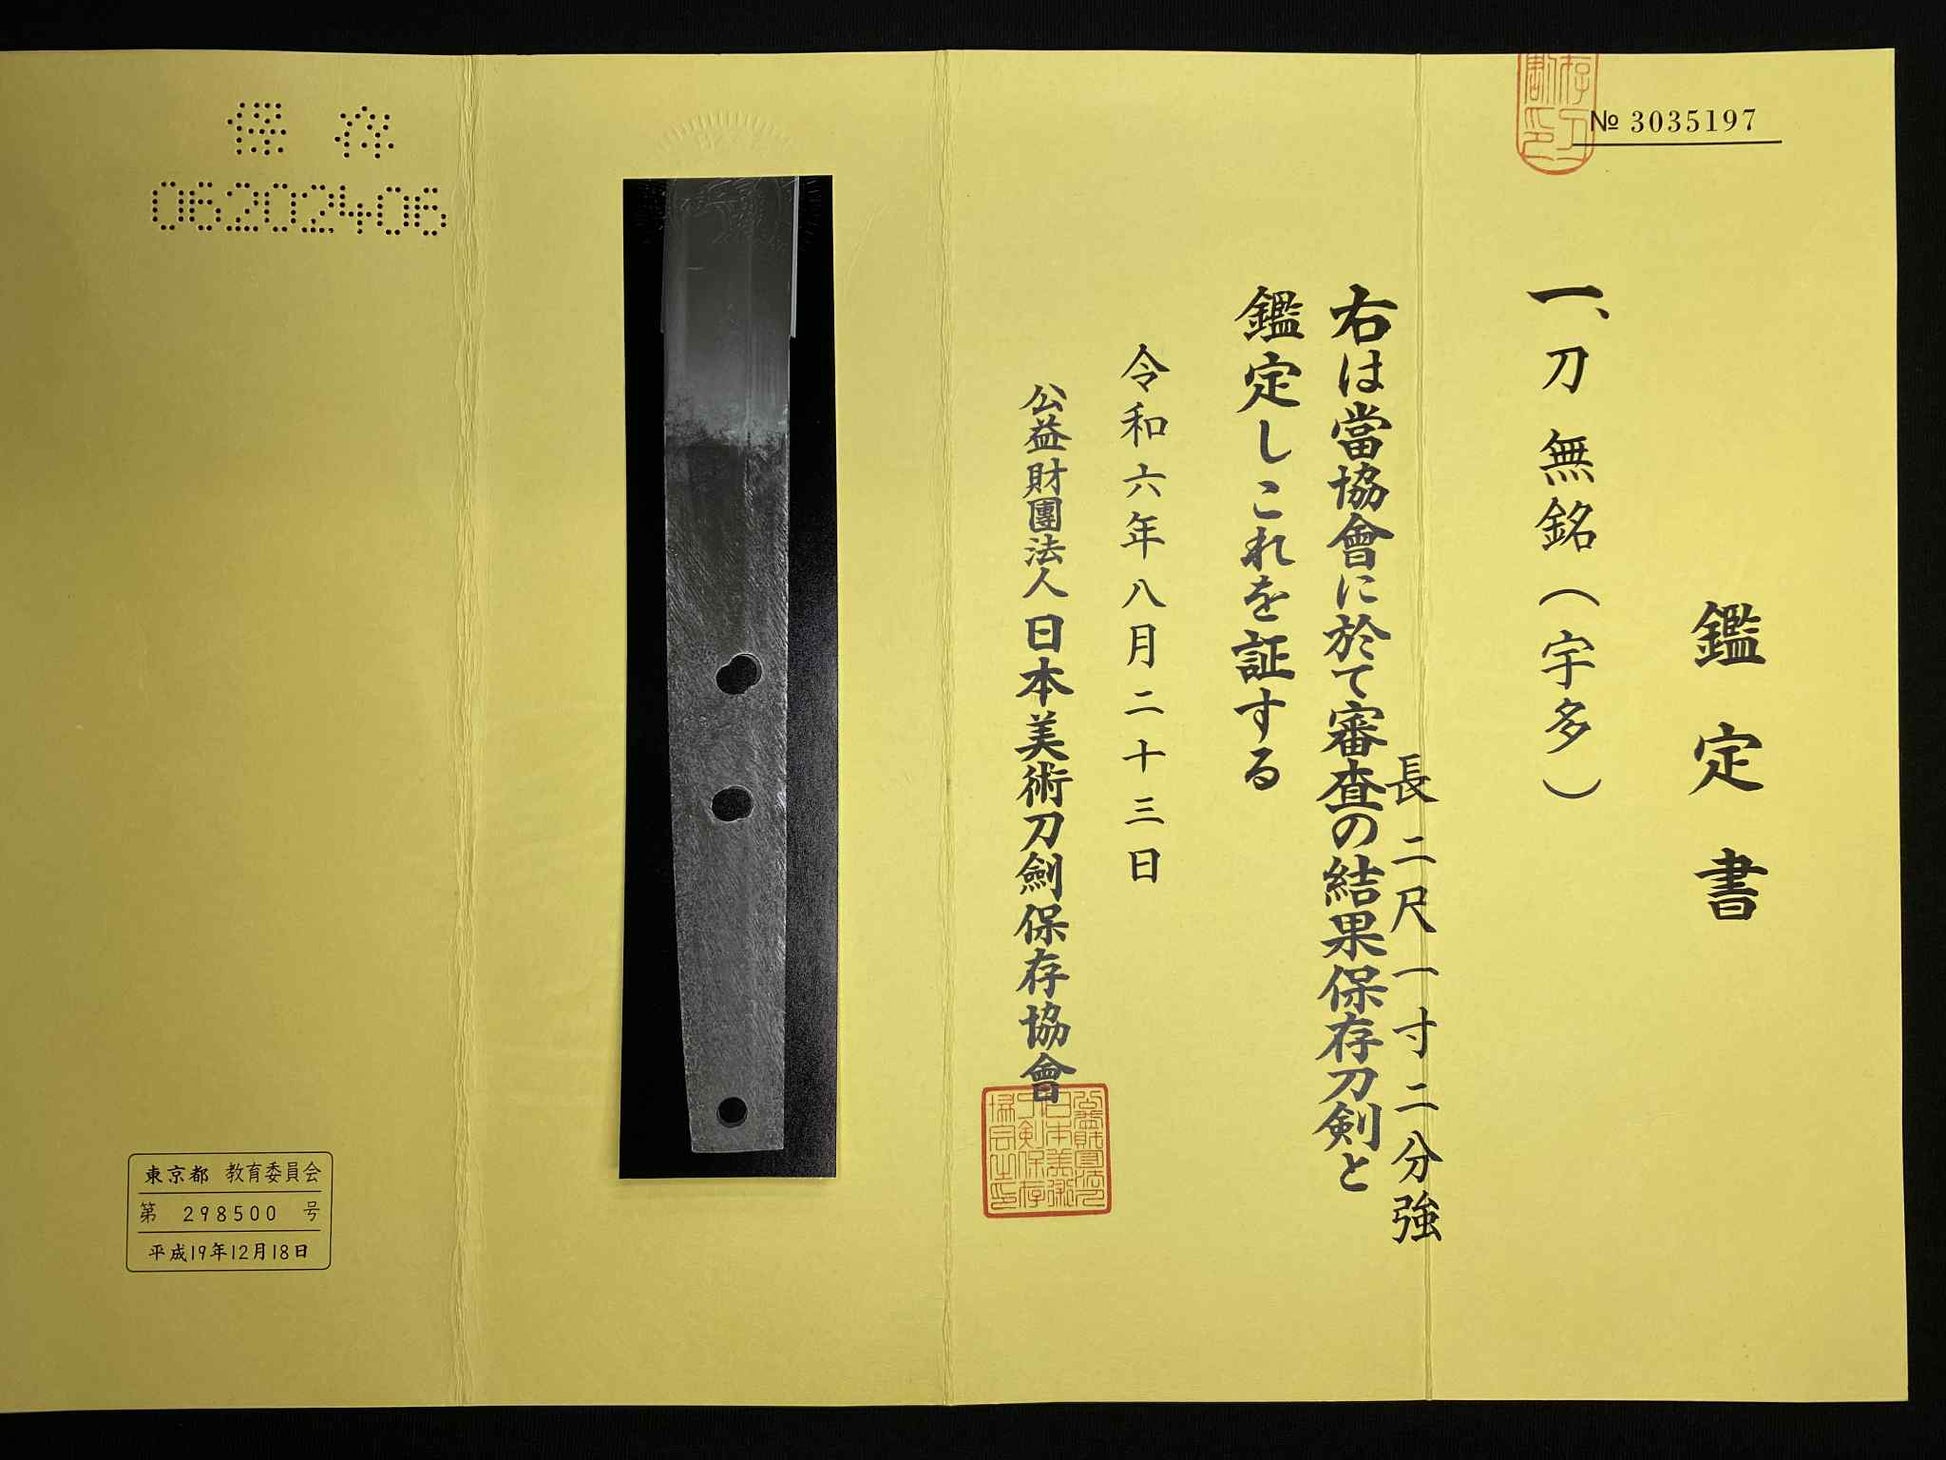 № 3035197
鑑定書
一、刀 無銘(宇多)
長 二尺一寸二分強
右は當協會に於て審査の結果保存刀剣と
鑑定しこれを証する
令和六年八月二十三日
公益財團法人日本美術刀劍保存協會
保存
06202406
東京都 教育委員会
第 298500 号
平成19年12月18日